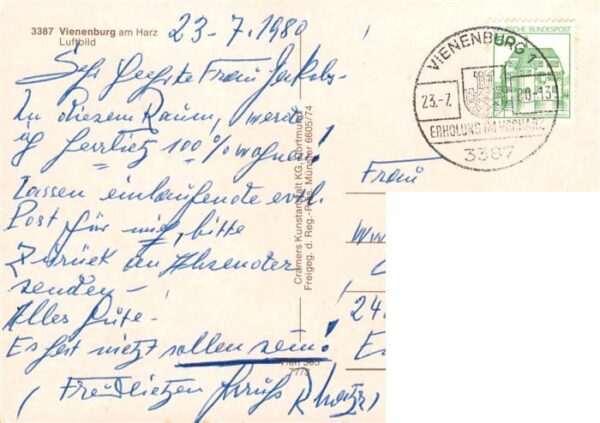 3387 Vienenburg am Harz
Luftbild
23-7.1980
Sehr geehrte Frau Jakobs-
In diesem Raum, werde
ig herrlietz 100% wohnen!
Lassen einlaufende evtl.
Post für mig, bitte
Zurück an Absender
senden-
Alles Gute-
Es hat nietzt sollen sein!
Freundlietzen Gruß R
Cramers Kunstanstalt KG, Dortmund
Freigeg. d. Reg.-Präs. Münster 6605/74
7773
DEUTSCHE BUNDESPOST
VIENENBURG 1
23.-7.
80-13
ERHOLUNG IM VORHARZ
3387
Frau
24